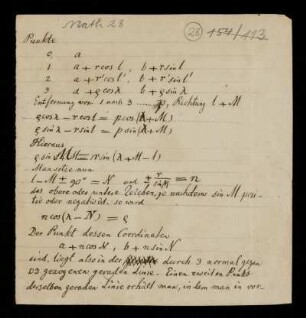 Math 28
(28) 154/113
Punkte
0 a
1 a + r cos l, b + r sin l
2 a + r' cos l', b + r' sin l'
3 a + ρ cos λ b + ρ sin λ
Entfernung von 1 nach 3 p, Richtung l + M
ρ cos λ − r cos l = p cos(l + M)
ρ sin λ − r sin l = p sin(l + M)
Hieraus
ρ sin = r sin(λ + M − l)
Man setze nun
l − M ± 90° = N und ± r/sin = n
das obere oder untere Zeichen, je nachdem sin M posi-
tiv oder negativ ist. so wird
n cos(λ − N) = ρ
Der Punkt dessen Coordinaten
a + n cos N, b + n sin N
sind, liegt also in der durch 3 normal gegen
03 gezogenen geraden Linie. Einen zweiten Punkt
derselben geraden Linie erhält man, indem man in vor-